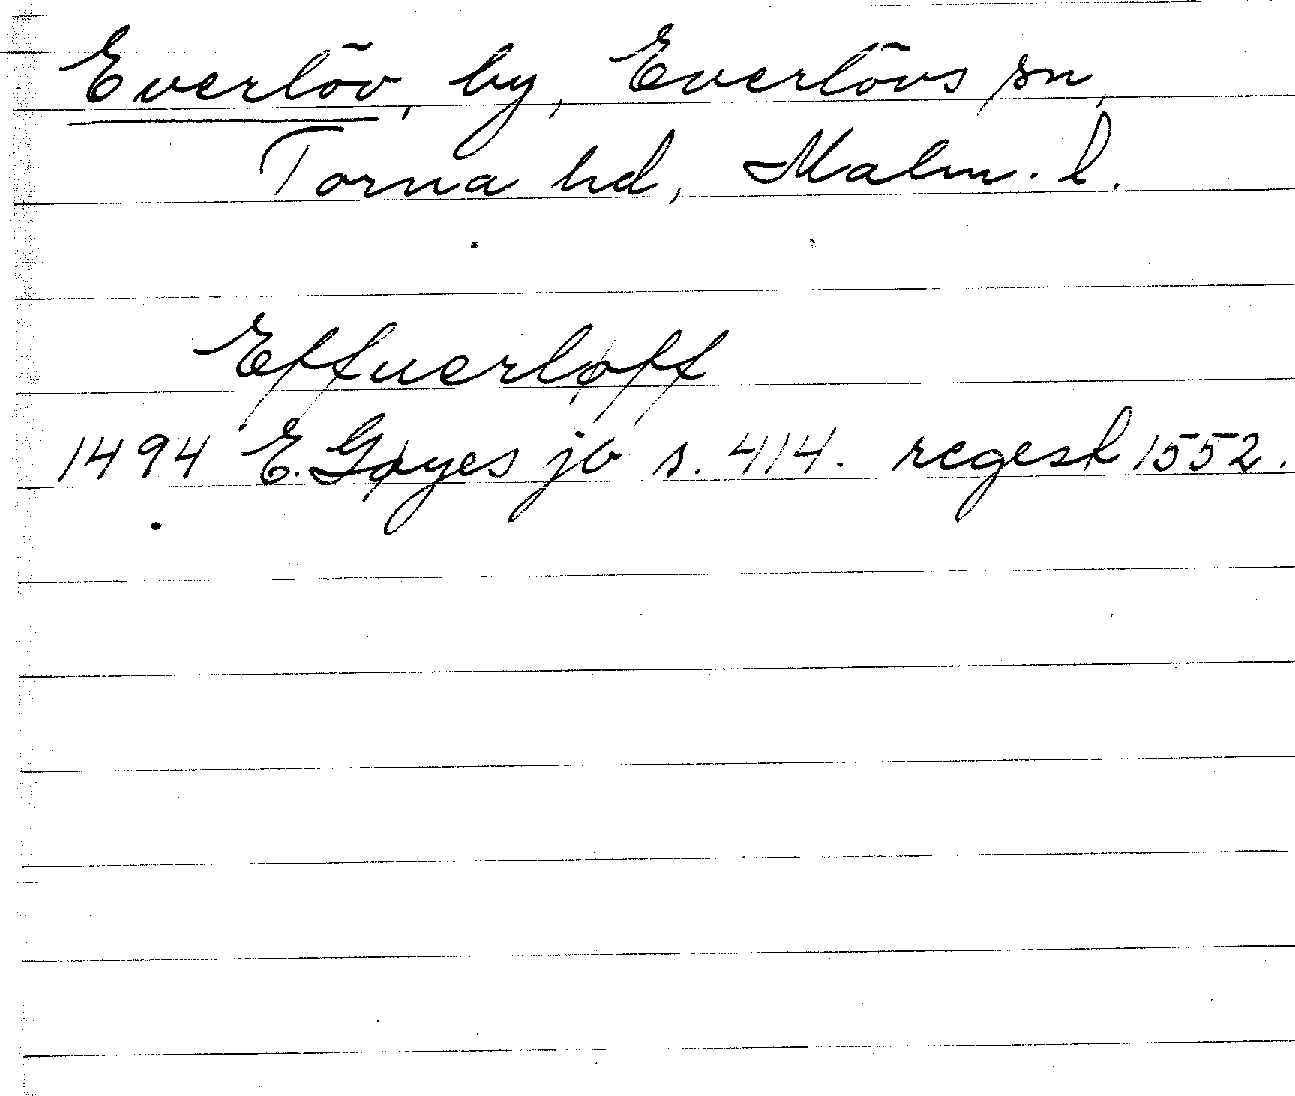 Everlöv, by, Everlövs sn,
Torna hd, Malm. l.
Effuerløff
1494 E. Gøyes jb s. 414. regest 1552.